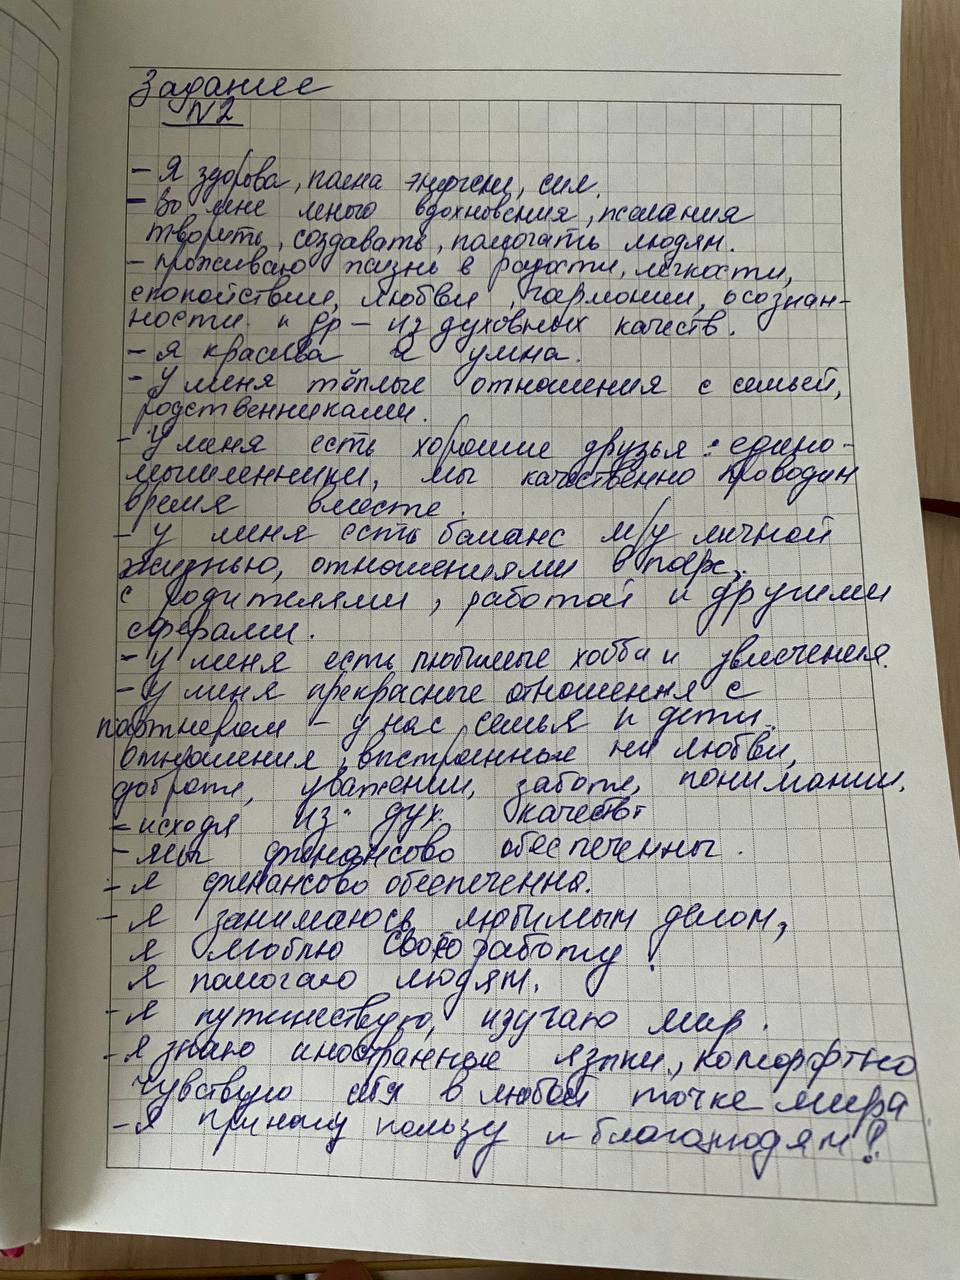 Задание
N2
- Я здорова, полна энергии, сил.
- Во мне много вдохновения, желания
творить, создавать, помогать людям.
- проживаю жизнь в радости, лёгкости,
спокойствии, любви, гармонии, осознан-
ности и др - из духовных качеств.
- я красива и умна.
- у меня тёплые отношения с семьёй,
родственниками.
- У меня есть хорошие друзья: едино-
мышленники, мы качественно проводим
время вместе.
- у меня есть баланс м/у личной
жизнью, отношениями в паре,
с родителями, работой и другими
сферами.
- у меня есть любимые хобби и увлечения.
- у меня прекрасные отношения с
партнером - у нас семья и дети.
отношения, выстроенные на любви,
доброте, уважении, заботе, понимании,
- исходя из дух. качеств
- мы финансово обеспеченны.
- я финансово обеспеченна.
- я занимаюсь любимым делом,
я люблю свою работу.
я помогаю людям.
- я путешествую, изучаю мир.
- я знаю иностранные языки, комфортно
чувствую себя в любой точке мира
- я приношу пользу и благо людям!